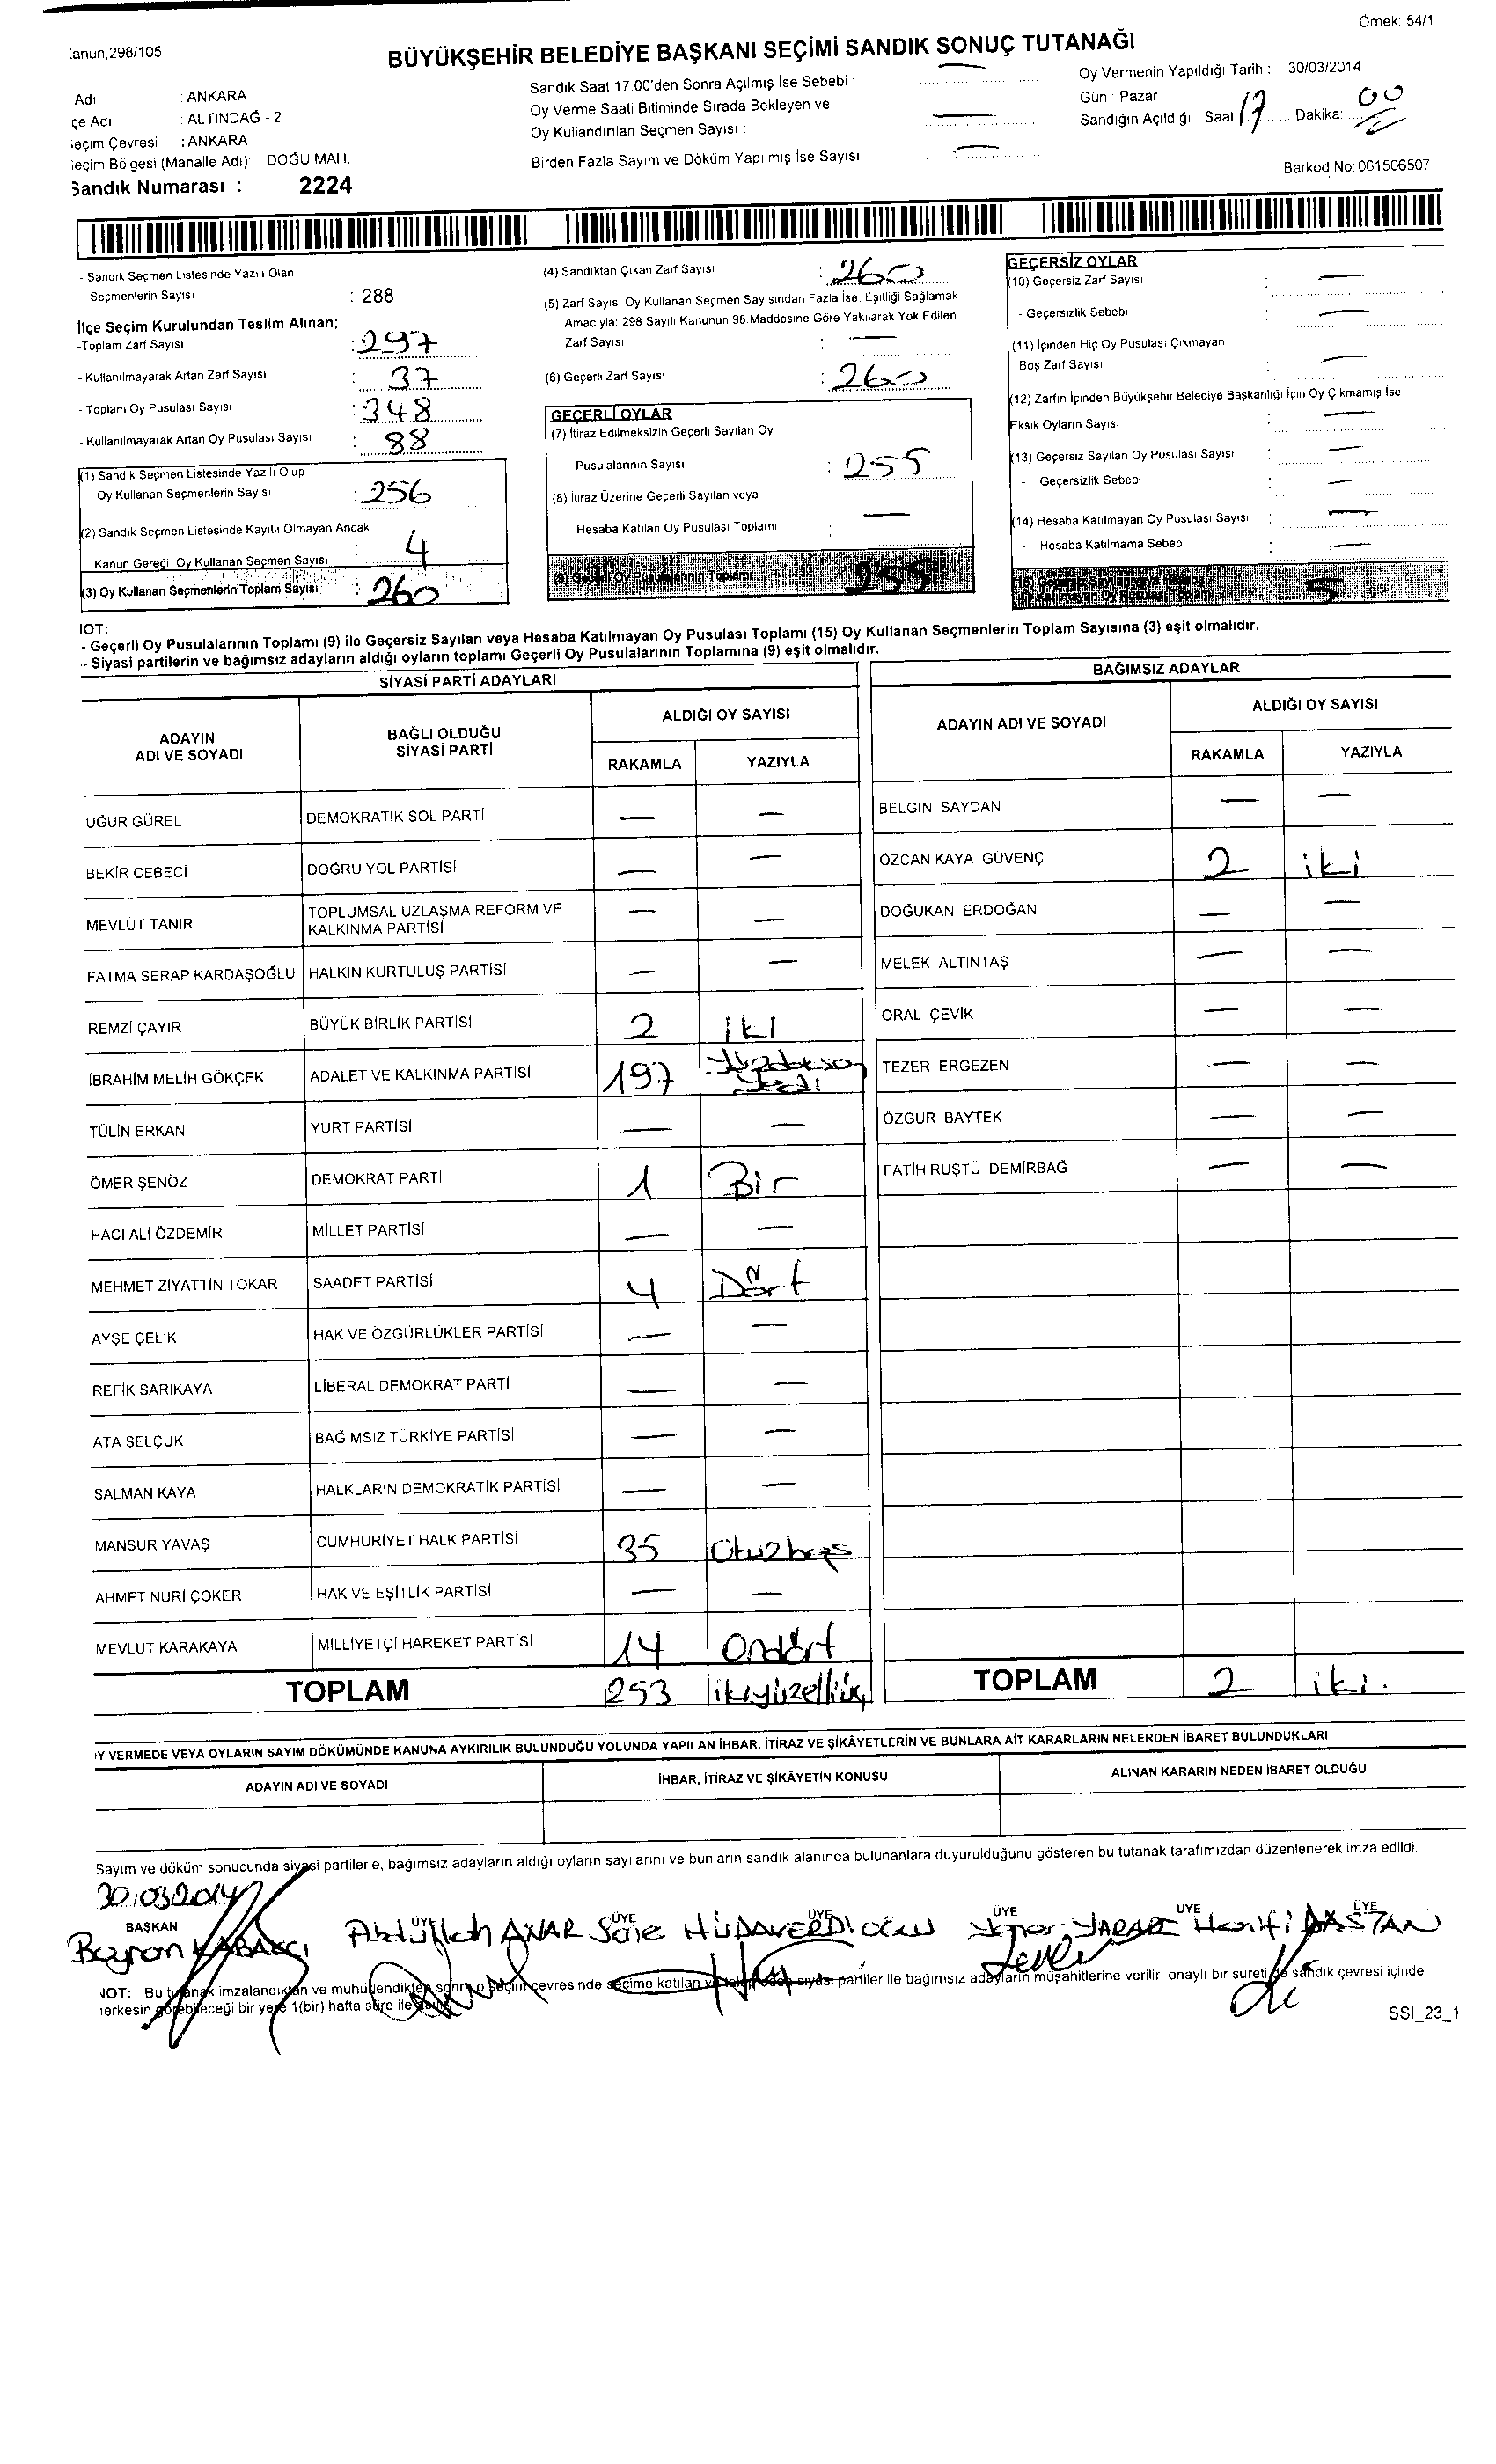 Örnek: 54/1
anun,298/105
BÜYÜKŞEHİR BELEDİYE BAŞKANI SEÇİMİ SANDIK SONUÇ TUTANAĞI
Adı : ANKARA
çe Adı : ALTINDAĞ - 2
eçim Çevresi : ANKARA
eçim Bölgesi (Mahalle Adı): DOĞU MAH.
Sandık Numarası : 2224
Sandık Saat 17.00'den Sonra Açılmış İse Sebebi : —
Oy Verme Saati Bitiminde Sırada Bekleyen ve
Oy Kullandırılan Seçmen Sayısı : —
Birden Fazla Sayım ve Döküm Yapılmış İse Sayısı: —
Oy Vermenin Yapıldığı Tarih : 30/03/2014
Gün : Pazar
Sandığın Açıldığı Saat 17 Dakika: 00
Barkod No: 061506507
- Sandık Seçmen Listesinde Yazılı Olan
Seçmenlerin Sayısı : 288
İlçe Seçim Kurulundan Teslim Alınan;
-Toplam Zarf Sayısı : 297
- Kullanılmayarak Artan Zarf Sayısı : 37
- Toplam Oy Pusulası Sayısı : 348
- Kullanılmayarak Artan Oy Pusulası Sayısı : 88
(1) Sandık Seçmen Listesinde Yazılı Olup
Oy Kullanan Seçmenlerin Sayısı : 256
(2) Sandık Seçmen Listesinde Kayıtlı Olmayan Ancak
Kanun Gereği Oy Kullanan Seçmen Sayısı : 4
(3) Oy Kullanan Seçmenlerin Toplam Sayısı : 260
(4) Sandıktan Çıkan Zarf Sayısı : 260
(5) Zarf Sayısı Oy Kullanan Seçmen Sayısından Fazla İse, Eşitliği Sağlamak
Amacıyla; 298 Sayılı Kanunun 98.Maddesine Göre Yakılarak Yok Edilen
Zarf Sayısı : —
(6) Geçerli Zarf Sayısı : 260
GEÇERLİ OYLAR
(7) İtiraz Edilmeksizin Geçerli Sayılan Oy
Pusulalarının Sayısı : 255
(8) İtiraz Üzerine Geçerli Sayılan veya
Hesaba Katılan Oy Pusulası Toplamı : —
(9) Geçerli Oy Pusulalarının Toplamı 255
GEÇERSİZ OYLAR
(10) Geçersiz Zarf Sayısı : —
- Geçersizlik Sebebi : —
(11) İçinden Hiç Oy Pusulası Çıkmayan
Boş Zarf Sayısı : —
(12) Zarfın İçinden Büyükşehir Belediye Başkanlığı İçin Oy Çıkmamış İse
Eksik Oyların Sayısı : —
(13) Geçersiz Sayılan Oy Pusulası Sayısı : —
- Geçersizlik Sebebi : —
(14) Hesaba Katılmayan Oy Pusulası Sayısı : —
- Hesaba Katılmama Sebebi : —
(15) Geçersiz Sayılan veya Hesaba
Katılmayan Oy Pusulası Toplamı 5
IOT:
- Geçerli Oy Pusulalarının Toplamı (9) ile Geçersiz Sayılan veya Hesaba Katılmayan Oy Pusulası Toplamı (15) Oy Kullanan Seçmenlerin Toplam Sayısına (3) eşit olmalıdır.
- Siyasi partilerin ve bağımsız adayların aldığı oyların toplamı Geçerli Oy Pusulalarının Toplamına (9) eşit olmalıdır.
SİYASİ PARTİ ADAYLARI
ADAYIN ADI VE SOYADI BAĞLI OLDUĞU SİYASİ PARTİ ALDIĞI OY SAYISI
RAKAMLA YAZIYLA
UĞUR GÜREL DEMOKRATİK SOL PARTİ — —
BEKİR CEBECİ DOĞRU YOL PARTİSİ — —
MEVLÜT TANIR TOPLUMSAL UZLAŞMA REFORM VE KALKINMA PARTİSİ — —
FATMA SERAP KARDAŞOĞLU HALKIN KURTULUŞ PARTİSİ — —
REMZİ ÇAYIR BÜYÜK BİRLİK PARTİSİ 2 iki
İBRAHİM MELİH GÖKÇEK ADALET VE KALKINMA PARTİSİ 197 Yüzdoksan yedi
TÜLİN ERKAN YURT PARTİSİ — —
ÖMER ŞENÖZ DEMOKRAT PARTİ 1 Bir
HACI ALİ ÖZDEMİR MİLLET PARTİSİ — —
MEHMET ZİYATTİN TOKAR SAADET PARTİSİ 4 Dört
AYŞE ÇELİK HAK VE ÖZGÜRLÜKLER PARTİSİ — —
REFİK SARIKAYA LİBERAL DEMOKRAT PARTİ — —
ATA SELÇUK BAĞIMSIZ TÜRKİYE PARTİSİ — —
SALMAN KAYA HALKLARIN DEMOKRATİK PARTİSİ — —
MANSUR YAVAŞ CUMHURİYET HALK PARTİSİ 35 Otuzbeş
AHMET NURİ ÇOKER HAK VE EŞİTLİK PARTİSİ — —
MEVLUT KARAKAYA MİLLİYETÇİ HAREKET PARTİSİ 14 Ondört
TOPLAM 253 ikiyüzelliüç
BAĞIMSIZ ADAYLAR
ADAYIN ADI VE SOYADI ALDIĞI OY SAYISI
RAKAMLA YAZIYLA
BELGİN SAYDAN — —
ÖZCAN KAYA GÜVENÇ 2 iki
DOĞUKAN ERDOĞAN — —
MELEK ALTINTAŞ — —
ORAL ÇEVİK — —
TEZER ERGEZEN — —
ÖZGÜR BAYTEK — —
FATİH RÜŞTÜ DEMİRBAĞ — —
TOPLAM 2 iki.
Y VERMEDE VEYA OYLARIN SAYIM DÖKÜMÜNDE KANUNA AYKIRILIK BULUNDUĞU YOLUNDA YAPILAN İHBAR, İTİRAZ VE ŞİKÂYETLERİN VE BUNLARA AİT KARARLARIN NELERDEN İBARET BULUNDUKLARI
ADAYIN ADI VE SOYADI İHBAR, İTİRAZ VE ŞİKÂYETİN KONUSU ALINAN KARARIN NEDEN İBARET OLDUĞU
Sayım ve döküm sonucunda siyasi partilerle, bağımsız adayların aldığı oyların sayılarını ve bunların sandık alanında bulunanlara duyurulduğunu gösteren bu tutanak tarafımızdan düzenlenerek imza edildi.
30.03.2014
BAŞKAN ÜYE ÜYE ÜYE ÜYE ÜYE ÜYE
HÜDAVERDİ
NOT: Bu tutanak imzalandıktan ve mühürlendikten sonra o seçim çevresinde seçime katılan siyasi partiler ile bağımsız adayların müşahitlerine verilir, onaylı bir sureti de sandık çevresi içinde
herkesin görebileceği bir yere 1(bir) hafta süre ile asılır.
SSI_23_1